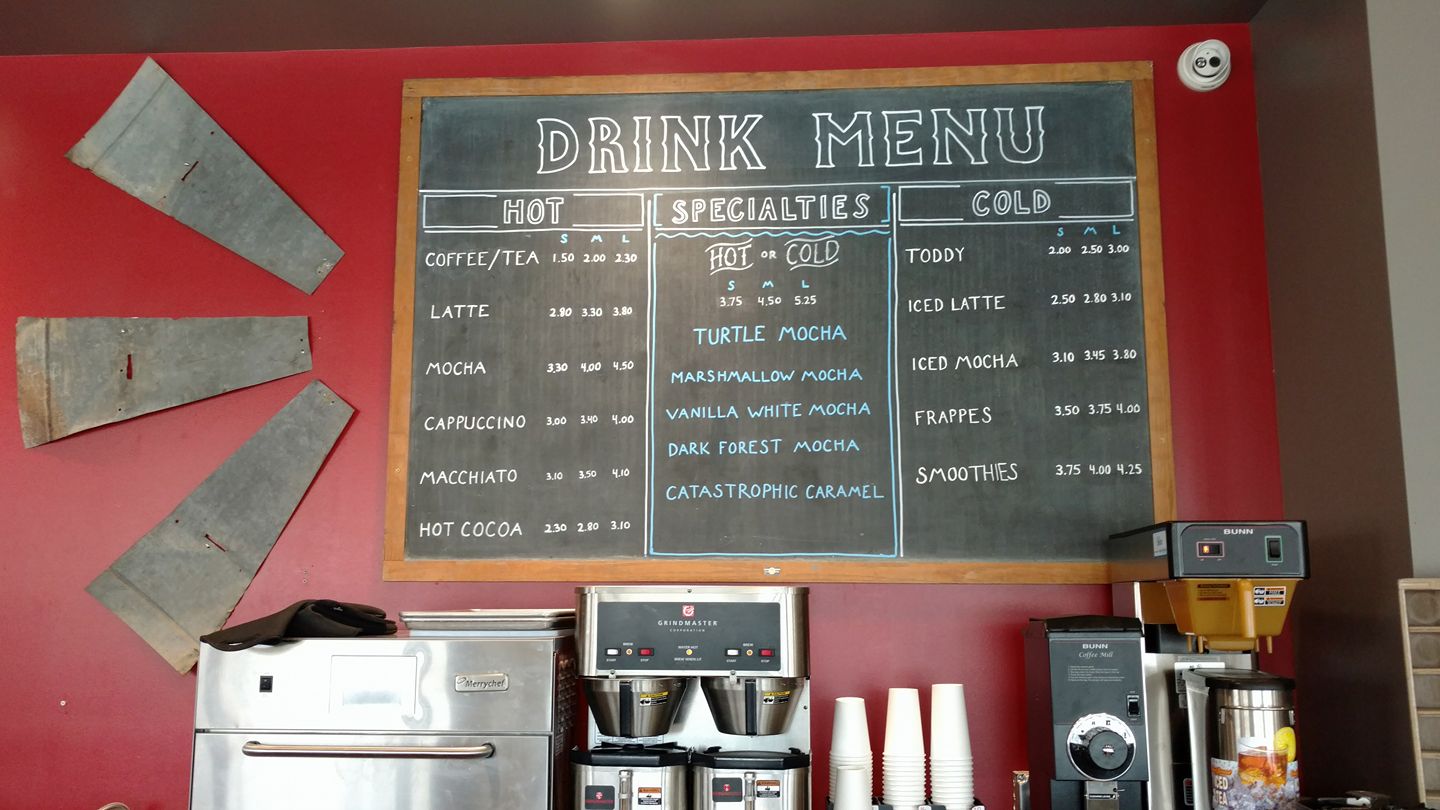 DRINK MENU
HOT
S M L
COFFEE/TEA 1.50 2.00 2.30
LATTE 2.80 3.30 3.80
MOCHA 3.30 4.00 4.50
CAPPUCCINO 3.00 3.40 4.00
MACCHIATO 3.10 3.50 4.10
HOT COCOA 2.30 2.80 3.10
SPECIALTIES
HOT OR COLD
S M L
3.75 4.50 5.25
TURTLE MOCHA
MARSHMALLOW MOCHA
VANILLA WHITE MOCHA
DARK FOREST MOCHA
CATASTROPHIC CARAMEL
COLD
S M L
TODDY 2.00 2.50 3.00
ICED LATTE 2.50 2.80 3.10
ICED MOCHA 3.10 3.45 3.80
FRAPPES 3.50 3.75 4.00
SMOOTHIES 3.75 4.00 4.25
Merrychef
GRINDMASTER
CORPORATION
BREW
START STOP
BREW
START STOP
BUNN
BUNN
Coffee Mill
ICED
TEA